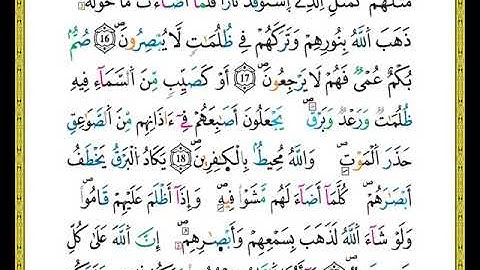 مَثَلُهُمْ كَمَثَلِ اِلذِے اِسْتَوْقَدَ نَاراٗ فَلَمَّآ أَضَآءَتْ مَا حَوْلَهُۥ
ذَهَبَ اَللَّهُ بِنُورِهِمْ وَتَرَكَهُمْ فِے ظُلُمَٰتٖ لَّا يُبْصِرُونَۖ 16 صُمُّۢ
بُكْمٌ عُمْيٞ فَهُمْ لَا يَرْجِعُونَۖ 17 أَوْ كَصَيِّبٖ مِّنَ اَلسَّمَآءِ فِيهِ
ظُلُمَٰتٞ وَرَعْدٞ وَبَرْقٞۖ يَجْعَلُونَ أَصَٰبِعَهُمْ فِےٓ ءَاذَانِهِم مِّنَ اَلصَّوَٰعِقِ
حَذَرَ اَلْمَوْتِۖ وَاللَّهُ مُحِيطُۢ بِالْكٰ۪فِرِينَۖ 18 يَكَادُ اُلْبَرْقُ يَخْطَفُ
أَبْصَٰرَهُمْۖ كُلَّمَآ أَضَآءَ لَهُم مَّشَوْاْ فِيهِۖ وَإِذَآ أَظْلَمَ عَلَيْهِمْ قَامُواْۖ
وَلَوْ شَآءَ اَللَّهُ لَذَهَبَ بِسَمْعِهِمْ وَأَبْصٰ۪رِهِمُۥٓۖ إِنَّ اَللَّهَ عَلَىٰ كُلِّ